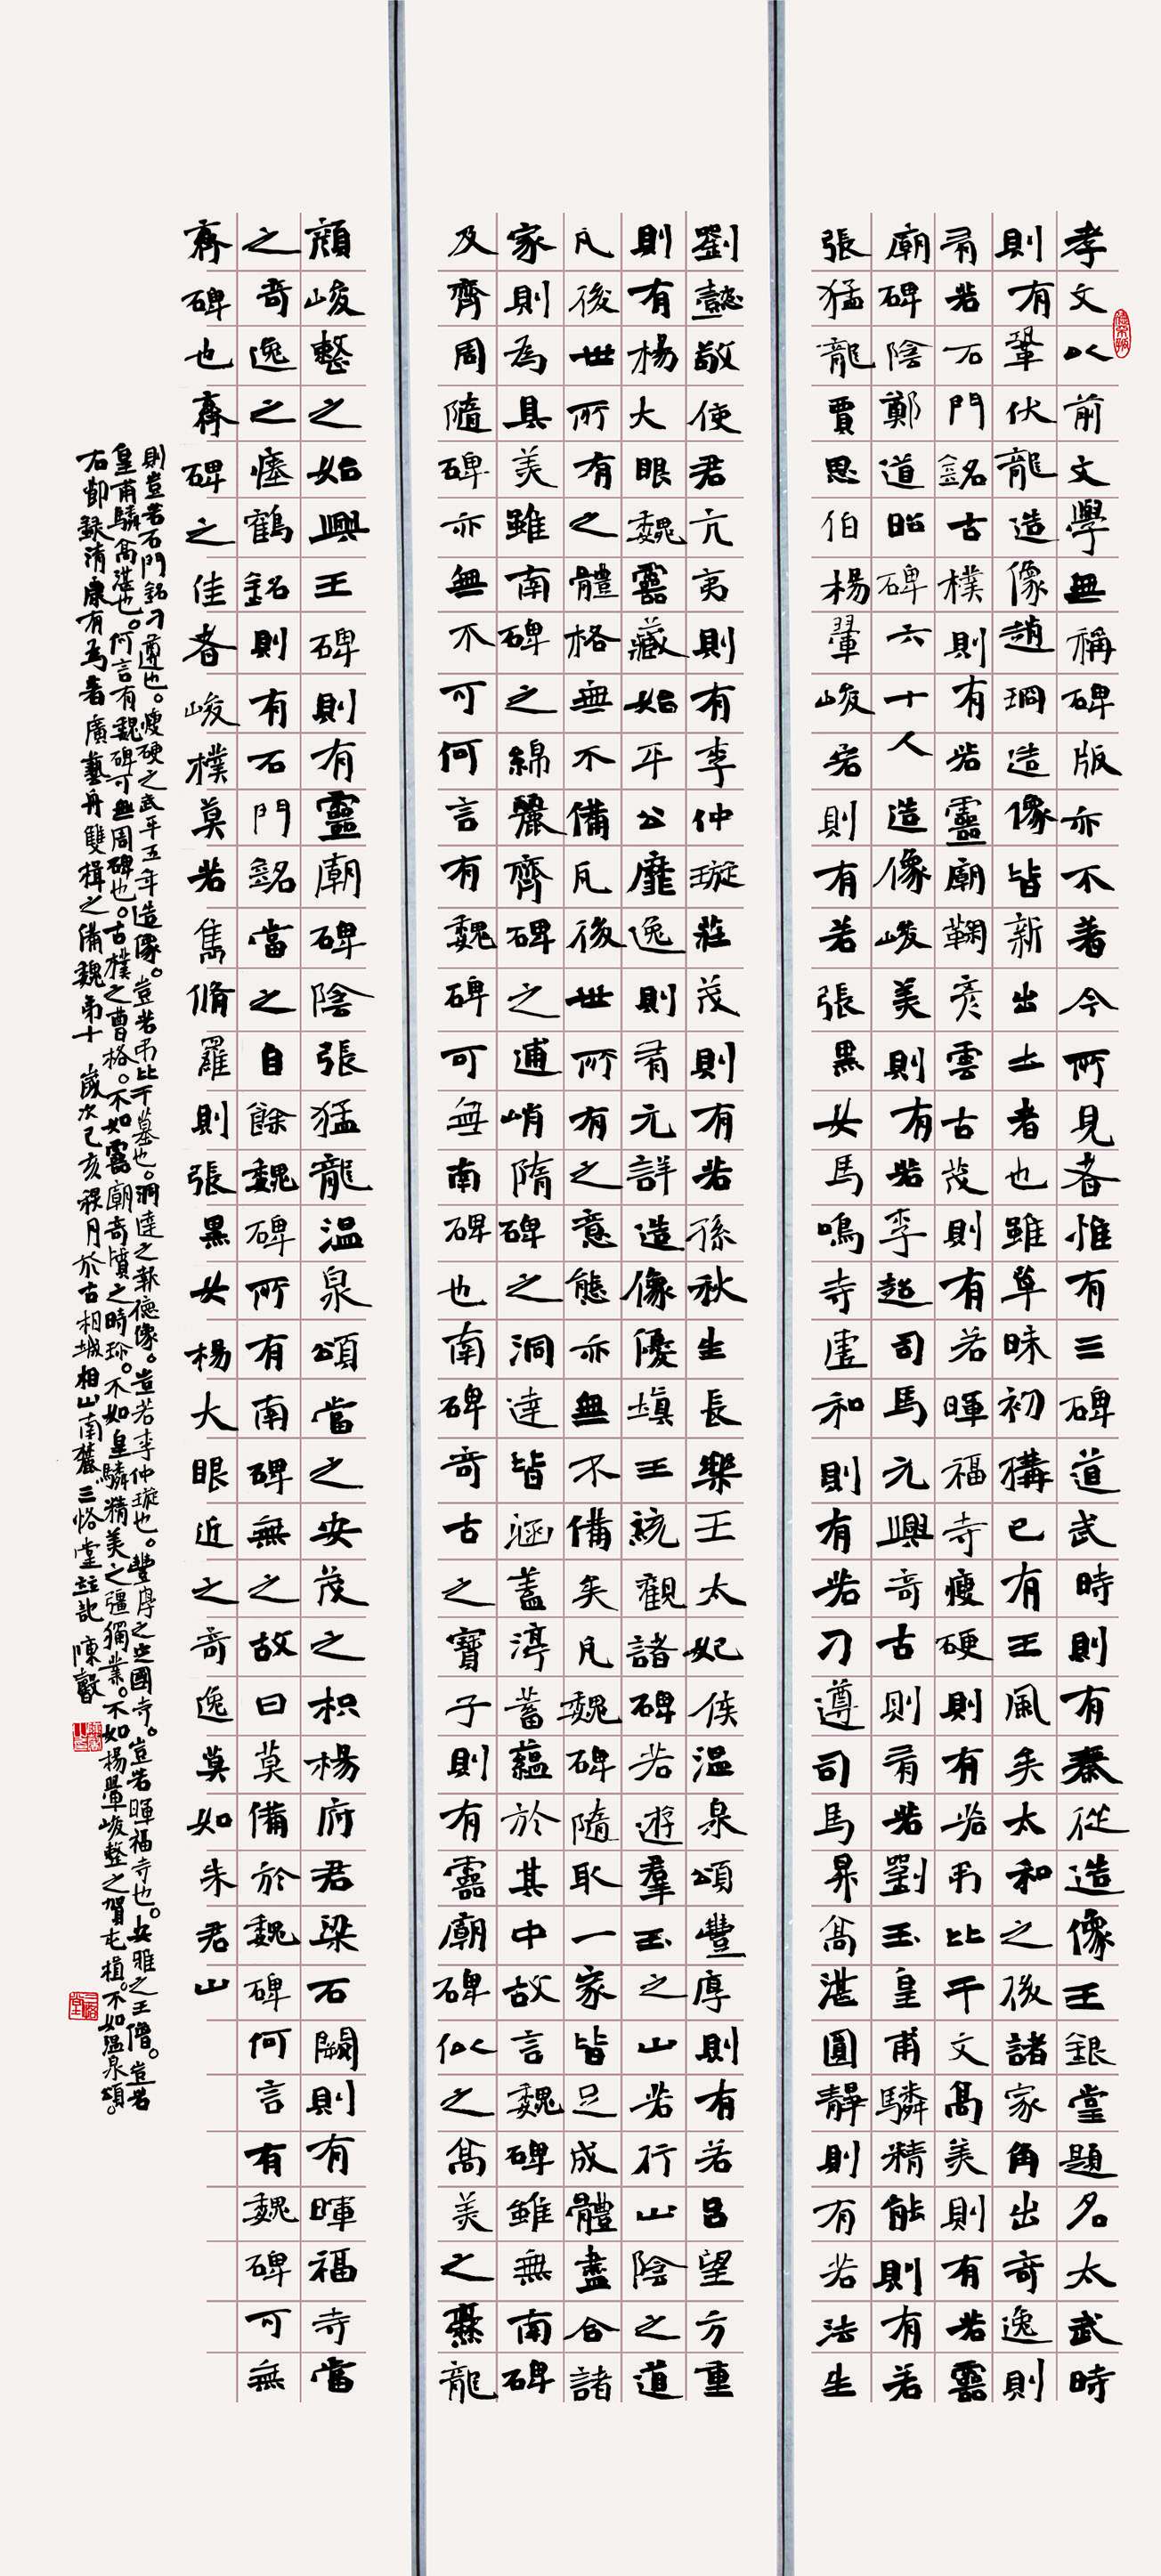 孝文以前文學無稱碑版亦不著今所見者惟有三碑道武時則有秦從造像王銀堂題名太武時
則有鞏伏龍造像趙琱造像皆新出土者也雖草昧初構已有王風矣太和之後諸家角出奇逸則
有若石門銘古樸則有若靈廟鞠彥雲古茂則有若暉福寺瘦硬則有若弔比干文高美則有若靈
廟碑陰鄭道昭碑六十人造像峻美則有若李超司馬元興奇古則有若劉玉皇甫驎精能則有若
張猛龍賈思伯楊翬峻宕則有若張黑女馬鳴寺虛和則有若刁遵司馬昇高湛圓靜則有若法生
劉懿敬使君亢夷則有李仲璇莊茂則有若孫秋生長樂王太妃侯溫泉頌豐厚則有若呂望方重
則有楊大眼魏靈藏始平公靡逸則有元詳造像優填王統觀諸碑若遊羣玉之山若行山陰之道
凡後世所有之體格無不備凡後世所有之意態亦無不備矣凡魏碑隨取一家皆足成體盡合諸
家則為具美雖南碑之綿麗齊碑之逋峭隋碑之洞達皆涵蓋渟蓄蘊於其中故言魏碑雖無南碑
及齊周隨碑亦無不可何言有魏碑可無南碑也南碑奇古之寶子則有靈廟碑似之高美之爨龍
顏峻整之始興王碑則有靈廟碑陰張猛龍溫泉頌當之安茂之枳楊府君梁石闕則有暉福寺當
之奇逸之瘞鶴銘則有石門銘當之自餘魏碑所有南碑無之故曰莫備於魏碑何言有魏碑可無
齊碑也齊碑之佳者峻樸莫若雋脩羅則張黑女楊大眼近之奇逸莫如朱君山
則豈若石門銘刁遵也。瘦硬之武平五年造像。豈若弔比干墓也。洞達之報德像。豈若李仲璇也。豐厚之定國寺。豈若暉福寺也。安雅之王僧。豈若
皇甫驎高湛也。何言有魏碑可無周碑也。古樸之曹恪。不如靈廟奇質之時珍。不如皇驎精美之彊獨業。不如楊翬峻整之賀屯植。不如溫泉頌。
右節錄清康有為著廣藝舟雙楫之備魏弟十 歲次己亥 月於古相城相山南麓三恪堂 記 陳毅